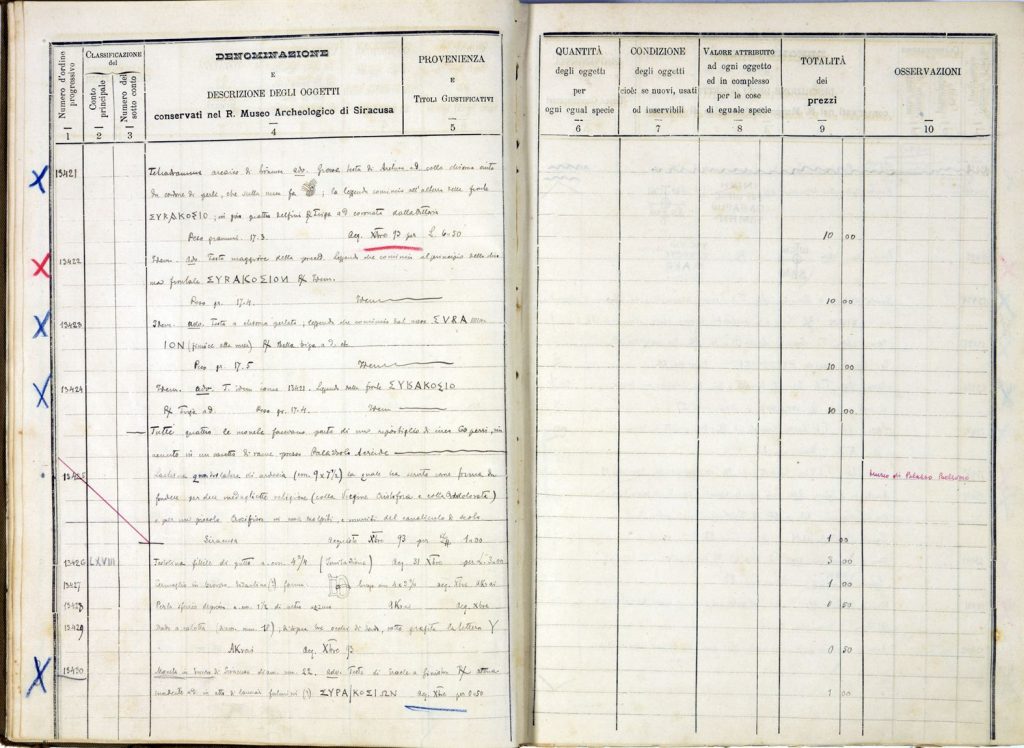 Numero d'ordine progressivo
CLASSIFICAZIONE del
Conto principale
Numero del sotto conto
DENOMINAZIONE
E
DESCRIZIONE DEGLI OGGETTI
conservati nel R. Museo Archeologico di Siracusa
PROVENIENZA
E
TITOLI GIUSTIFICATIVI
1 2 3 4 5
QUANTITÀ
degli oggetti
per
ogni egual specie
6
CONDIZIONE
degli oggetti
cioè: se nuovi, usati
od inservibili
7
VALORE ATTRIBUITO
ad ogni oggetto
ed in complesso
per le cose
di eguale specie
8
TOTALITÀ
dei
prezzi
9
OSSERVAZIONI
10
13421 Tetradramma arcaico di bilancia adv. Grossa testa di
di cordone di perle, che sulla nuca fa ; la leggenda comincia all'altezza della fronte
ΣΥRΑΚΟΣΙΟ; in giro quattro delfini R Biga a d coronata dalla Vittoria
Peso grammi. 17.3. Acq. Xbre 93 per L. 6.50
10 00
13422 Idem. adv. Testa maggiore della preced. Leggenda che comincia al principio della
frontale ΣΥRΑΚΟΣΙΟΝ R Idem.
Peso gr. 17.4. Idem
10 00
13423 Idem. adv. Testa a chioma perlata; leggenda che comincia dal naso ΣVRA
ION (finisce alla nuca) R Bella biga a d. etc.
Peso gr. 17.5 Idem
10 00
13424 Idem. adv. T. idem come 13421. Leggenda sulla fronte ΣΥRΑΚΟΣΙΟ
R Biga a d Peso gr. 17.4. Idem
10 00
Tutte quattro le monete facevano parte di un ripostiglio di circa 60 pezzi,
in un vasetto di rame presso Palazzolo Acreide
13425 quadrilatera di ardesia (cm. 9 x 7½) la quale ha servito come forma da
fondere per due medagliette religiose (colla Vergine e colla Addolorata)
e per un piccolo Crocifisso in cavo scolpiti, e muniti del canaliculo di scolo.
Siracusa Acquisto Xbre 93 per L. 1.00
1 00
Museo di Palazzo Bellomo
13426 LXVIII fittile di putto a. cm. 4¾ (Imitazione) Acq. 31 Xbre per L. 3.00
3 00
13427 in bronzo bizantino(?) forma lungo cm. acq. Xbre Akrai
1 00
13428 Perla sferica d. cm. 1½ di vetro azzurro Akrai Acq. Xbre
0 50
13429 Dado a calotta (diam. mm. 18), ordini di sotto graffita la lettera Y
Akrai Acq. Xbre 93
0 50
13430 Moneta in bronzo di Siracusa diam. mm. 22. adv. Testa di Eracle a sinistra R Athena
a d. in atto di lanciar fulmini (?) ΣΥΡΑΚΟΣΙΩΝ Acq. Xbre per 0.50
1 00